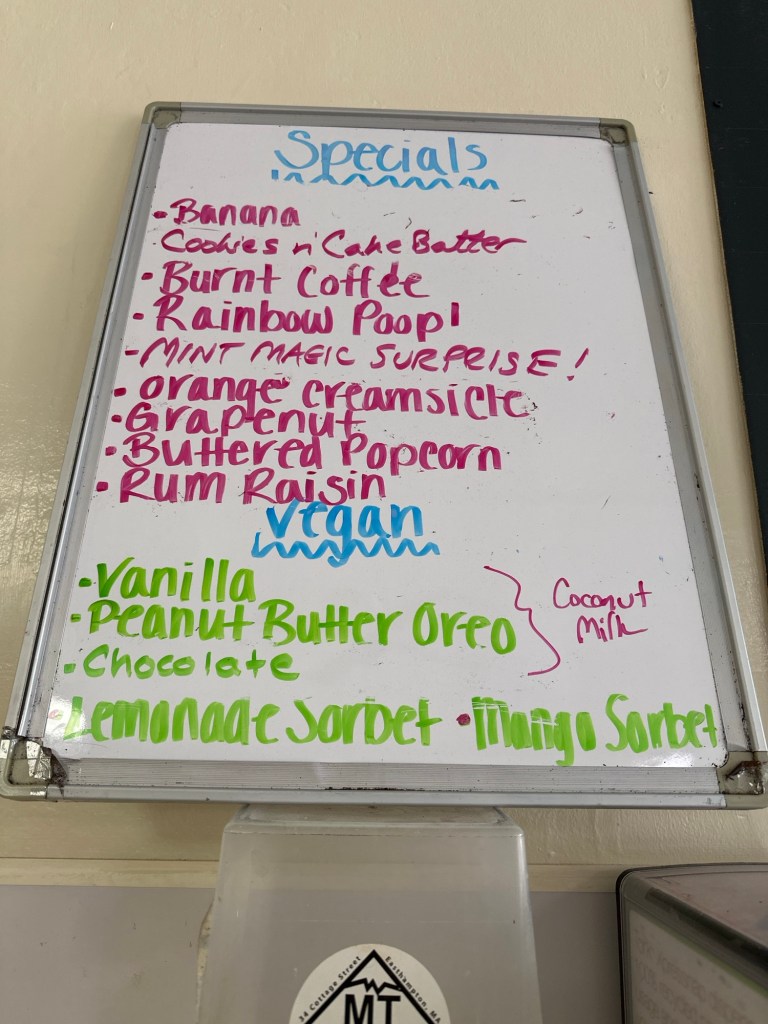 Specials
•Banana
Cookies n' Cake Batter
•Burnt Coffee
•Rainbow Poop!
-MINT MAGIC SURPRISE!
•orange creamsicle
•Grapenut
•Buttered Popcorn
•Rum Raisin
Vegan
•Vanilla
•Peanut Butter Oreo
•Chocolate
Coconut
Milk
Lemonade Sorbet •Mango Sorbet
34 Cottage Street Easthampton, MA
MT